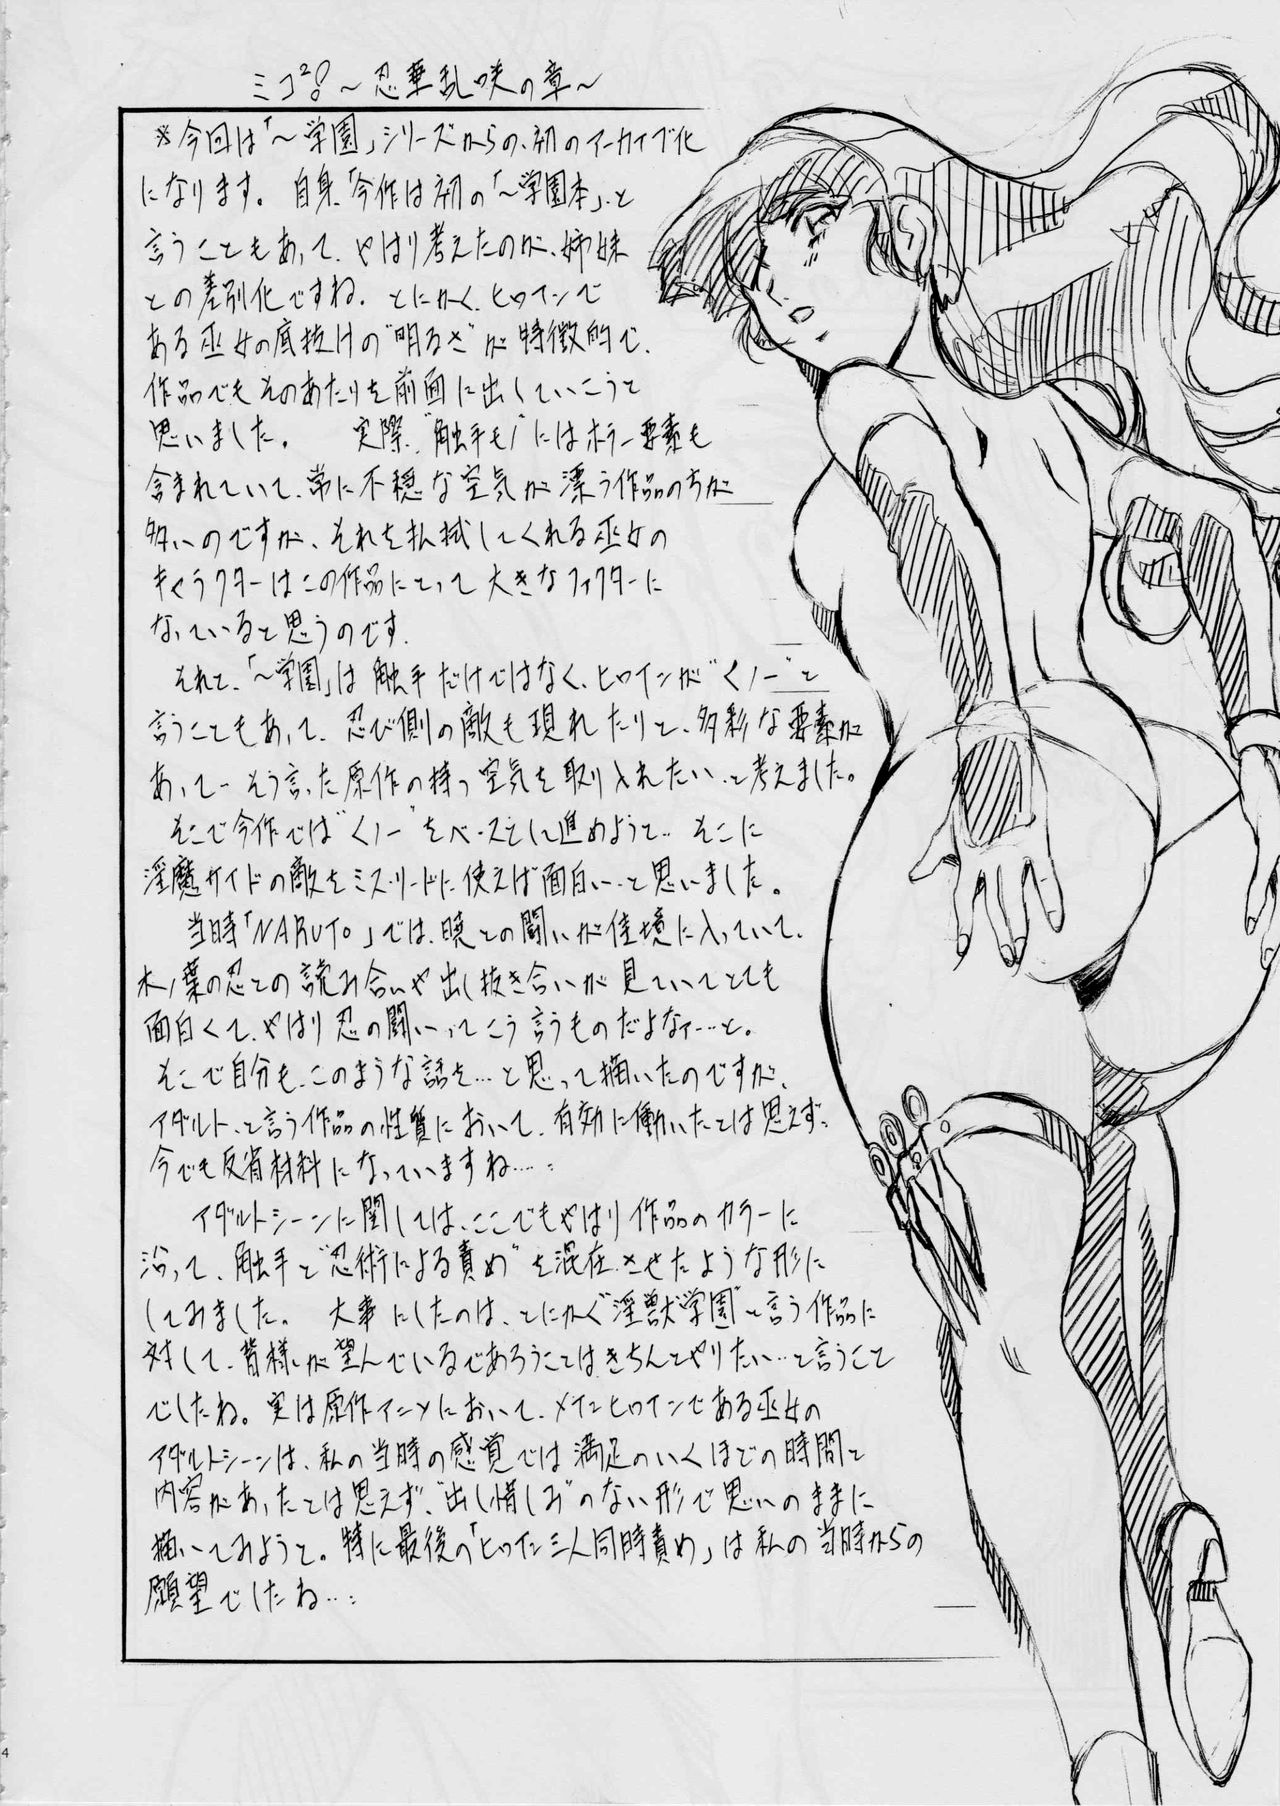 ミコ²!～忍華乱咲の章～
※今回は「～学園」シリーズからの、初のアーカイブ化
になります。 自身「今作は初の「～学園本」と
言うこともあって、やはり考えたのが、姉妹
との差別化ですね。とにかく、ヒロインで
ある巫女の底抜けの“明るさ”が特徴的で、
作品でもそのあたりを前面に出していこうと
思いました。 実際、“触手モノ”にはホラー要素も
含まれていて、常に不穏な空気が漂う作品の方が
多いのですが、それを払拭してくれる巫女の
キャラクターはこの作品にとって大きなファクターに
なっていると思うのです。
それと、「～学園」は触手だけではなく、ヒロインが“くノ一”と
言うこともあって、忍び側の敵も現れたりと、多彩な要素が
あって…そう言った原作の持つ空気を取り入れたい…と考えました。
そこで今作では“くノ一”をベースとして進めようと… そこに
淫魔サイドの敵をミス・リードに使えば面白い…と思いました。
当時「NARUTO」では、暁との闘いが佳境に入っていて、
木ノ葉の忍との読み合いや出し抜き合いが見ていてとても
面白くて、やはり忍の闘いってこう言うものだよなァ…と。
そこで自分も、このような話を…と思って描いたのですが、
アダルト、と言う作品の性質において、有効に働いたとは思えず…
今でも反省材料になっていますね…
アダルトシーンに関しては、ここでもやはり作品のカラーに
沿って、触手と“忍術による責め”を混在させたような形に
してみました。 大事にしたのは、とにかく“淫獣学園”と言う作品に
対して、皆様が望んでいるであろうことはきちんとやりたい…と言うこと
でしたね。実は原作アニメにおいて、メインヒロインである巫女の
アダルトシーンは、私の当時の感覚では満足のいくほどの時間と
内容があったとは思えず、“出し惜しみ”のない形で思いのままに
描いてみようと。特に最後の「ヒロイン三人同時責め」は私の当時からの
願望でしたね…
4